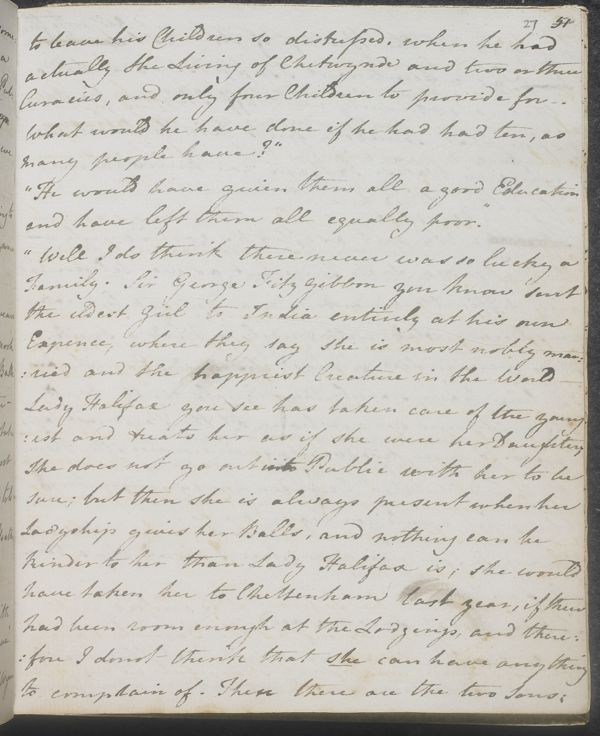 27 51
to leave his Children so distressed, when he had
actually the Living of Chetwynde and two or three
Curacies, and only four Children to provide for--
What would he have done if he had had ten, as
many people have?"
"He would have given them all a good Education
and have left them all equally poor."
"Well I do think there never was so lucky a
Family. Sir George FitzGibbon you know sent
the eldest girl to India entirely at his own
Expence, where they say she is most nobly mar:
:ried and the happiest Creature in the World—
Lady Halifax you see has taken care of the young:
:est and treats her as if she were her Daughter;
She does not go out into Public with her to be
sure; but then she is always present when her
Ladyship gives her Balls, and nothing can be
kinder to her than Lady Halifax is; she would
have taken her to Cheltenham last year, if there
had been room enough at the Lodgings, and there:
:fore I donot think that she can have anything
to complain of. Then there are the two Sons;